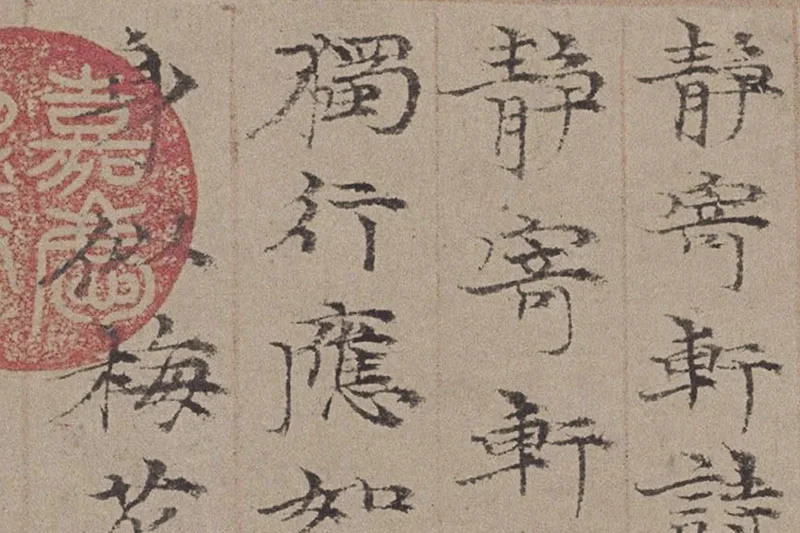 靜寄軒詩
靜寄軒
獨行應如
身似梅花
嘉慶